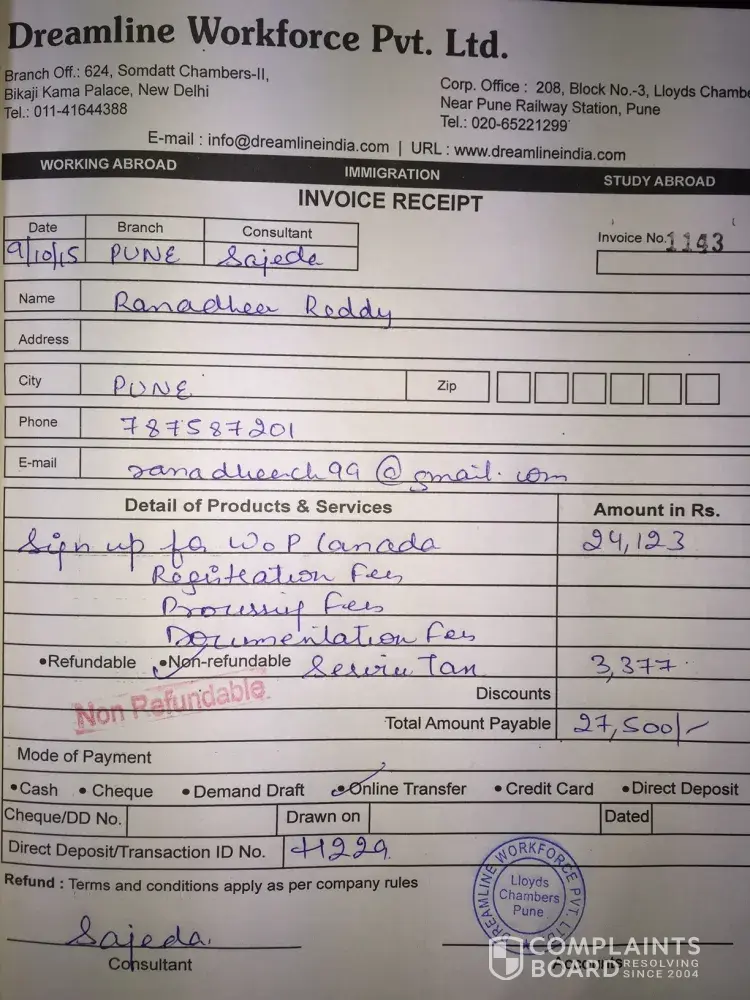 Dreamline Workforce Pvt. Ltd.
Branch Off.: 624, Somdatt Chambers-II,
Bikaji Kama Palace, New Delhi
Tel.: 011-41644388
Corp. Office : 208, Block No.-3, Lloyds Chambe
Near Pune Railway Station, Pune
Tel.: 020-65221299
E-mail : info@dreamlineindia.com | URL : www.dreamlineindia.com
WORKING ABROAD IMMIGRATION STUDY ABROAD
INVOICE RECEIPT
Date Branch Consultant
9/10/15 PUNE Sajeda
Invoice No. 1143
Name Ranadheer Reddy
Address
City PUNE Zip
Phone 787587201
E-mail ranadheerch99@gmail.com
Detail of Products & Services Amount in Rs.
Sign up for WOP Canada 24,123
Registration Fees
Processing Fees
Documentation Fees
•Refundable •Non-refundable Service Tax 3,377
Non Refundable
Discounts
Total Amount Payable 27,500/-
Mode of Payment
•Cash •Cheque •Demand Draft •Online Transfer •Credit Card •Direct Deposit
Cheque/DD No. Drawn on Dated
Direct Deposit/Transaction ID No. 41229
Refund : Terms and conditions apply as per company rules
DREAMLINE WORKFORCE PVT. LTD
Lloyds
Chambers
Pune
Sajeda
Consultant
Accounts
COMPLAINTS
BOARD RESOLVING
SINCE 2004